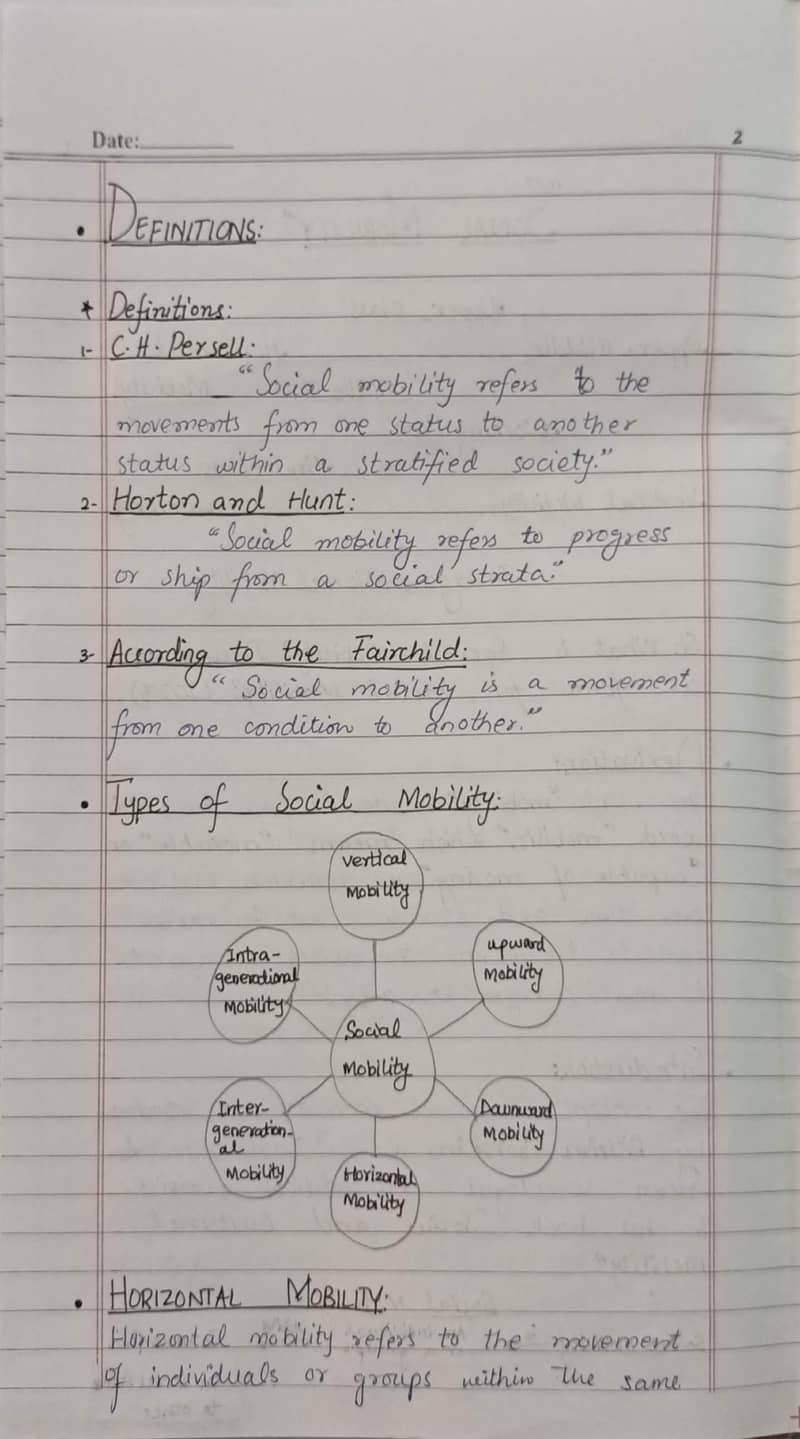 Date:
2
• DEFINITIONS:
* Definitions:
1- C.H. Persell:
"Social mobility refers to the
movements from one status to another
status within a stratified society."
2- Horton and Hunt:
"Social mobility refers to progress
or ship from a social strata."
3- According to the Fairchild:
"Social mobility is a movement
from one condition to another."
• Types of Social Mobility:
Vertical
Mobility
Intra-
generational
Mobility
upward
Mobility
Social
Mobility
Inter-
generation-
al
Mobility
Downward
Mobility
Horizontal
Mobility
• HORIZONTAL MOBILITY:
Horizontal mobility refers to the movement
of individuals or groups within the same